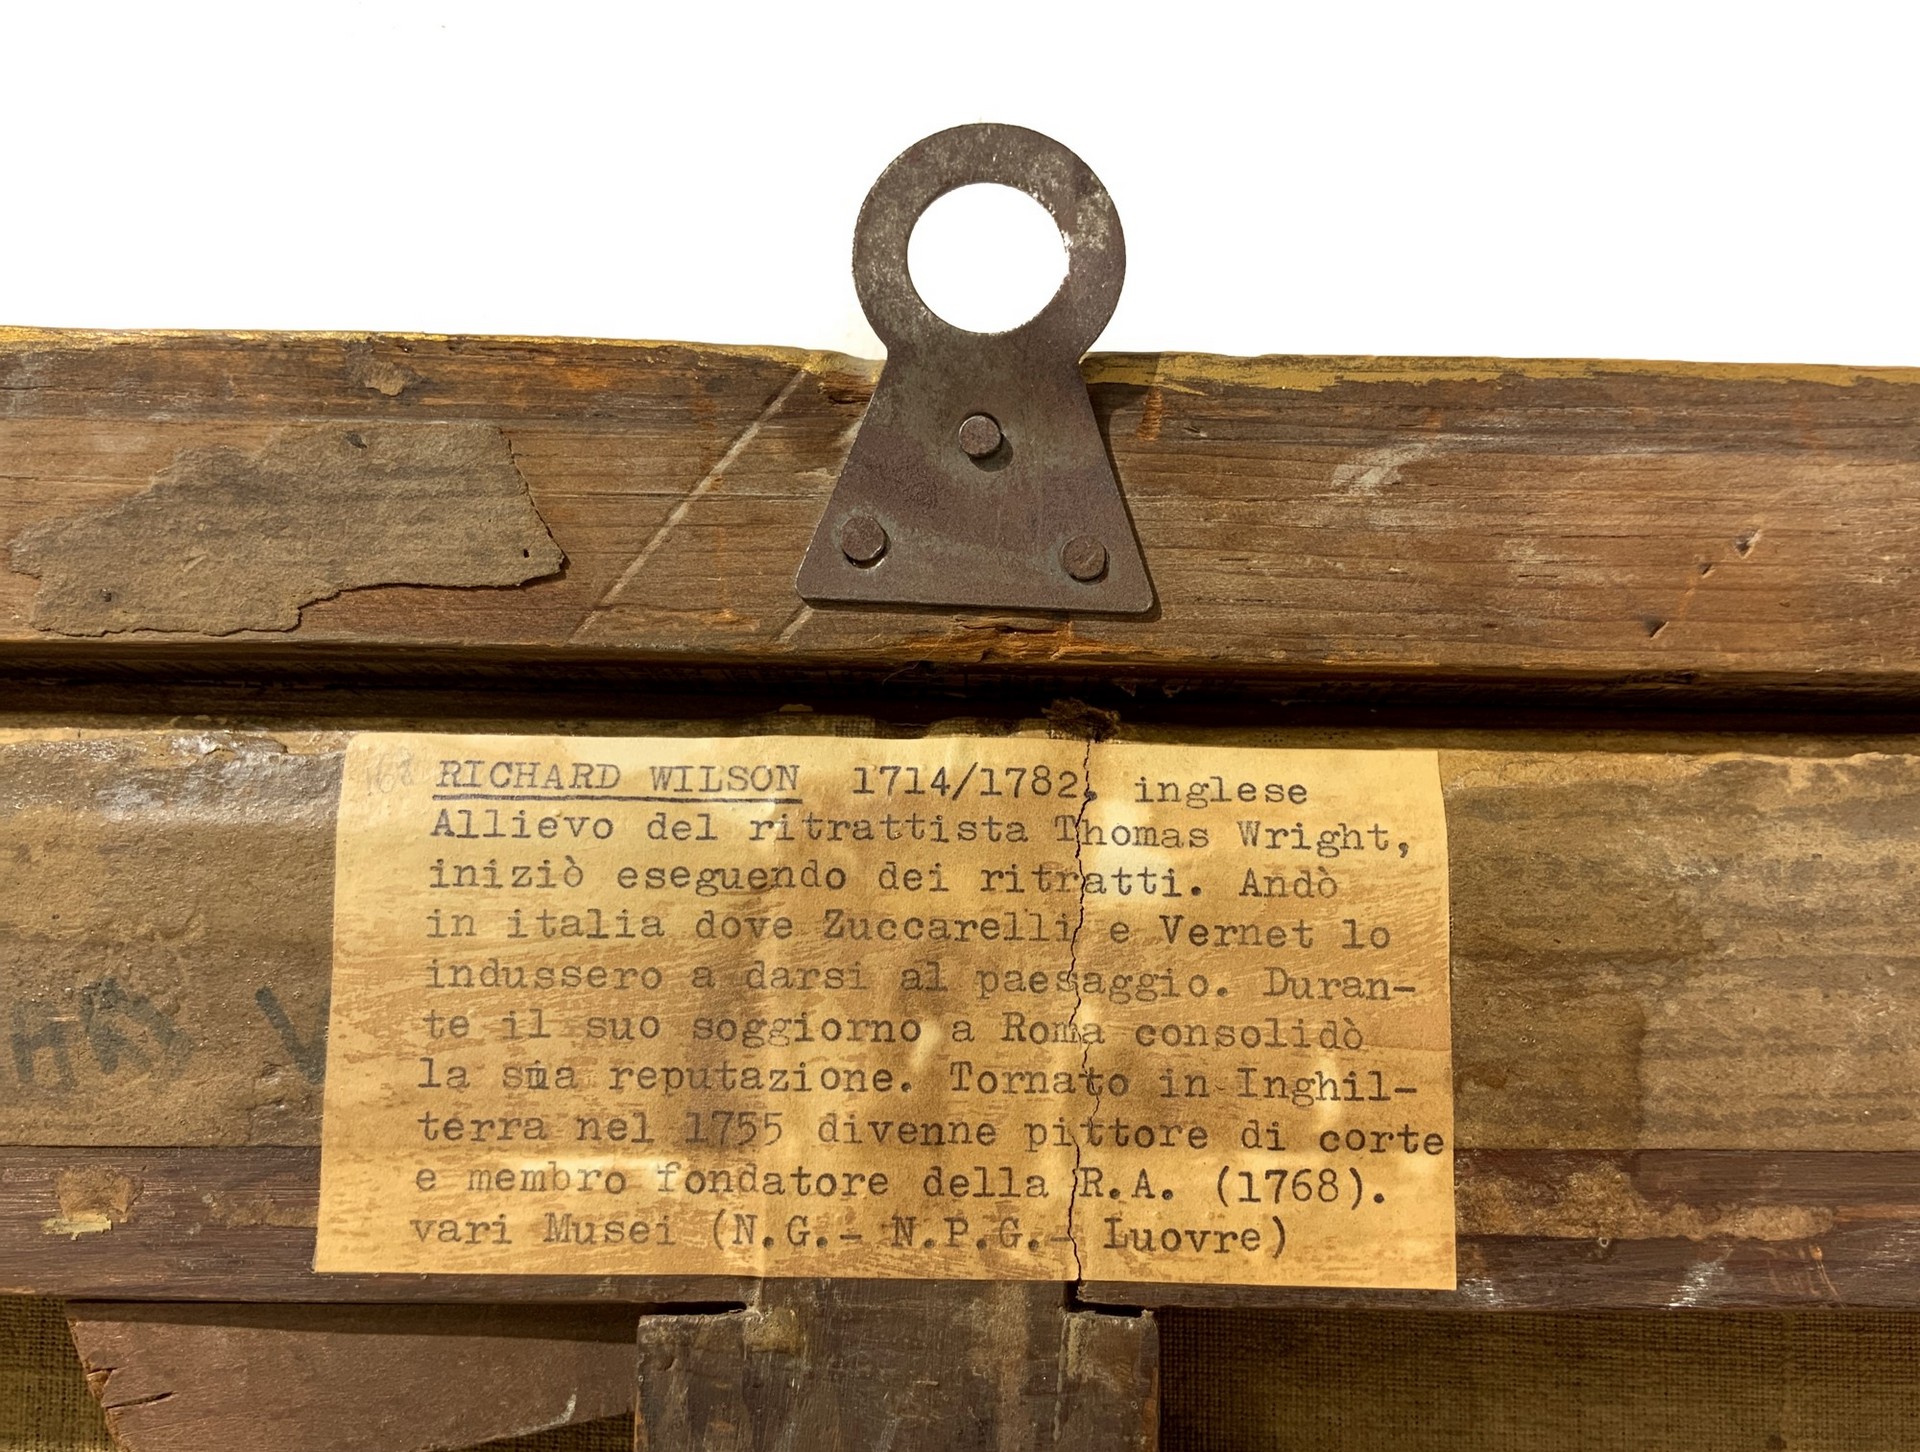 RICHARD WILSON 1714/1782, inglese
Allievo del ritrattista Thomas Wright,
iniziò eseguendo dei ritratti. Andò
in italia dove Zuccarelli e Vernet lo
indussero a darsi al paesaggio. Duran-
te il suo soggiorno a Roma consolidò
la sua reputazione. Tornato in Inghil-
terra nel 1755 divenne pittore di corte
e membro fondatore della R.A. (1768).
vari Musei (N.G.- N.P.G.- Luovre)